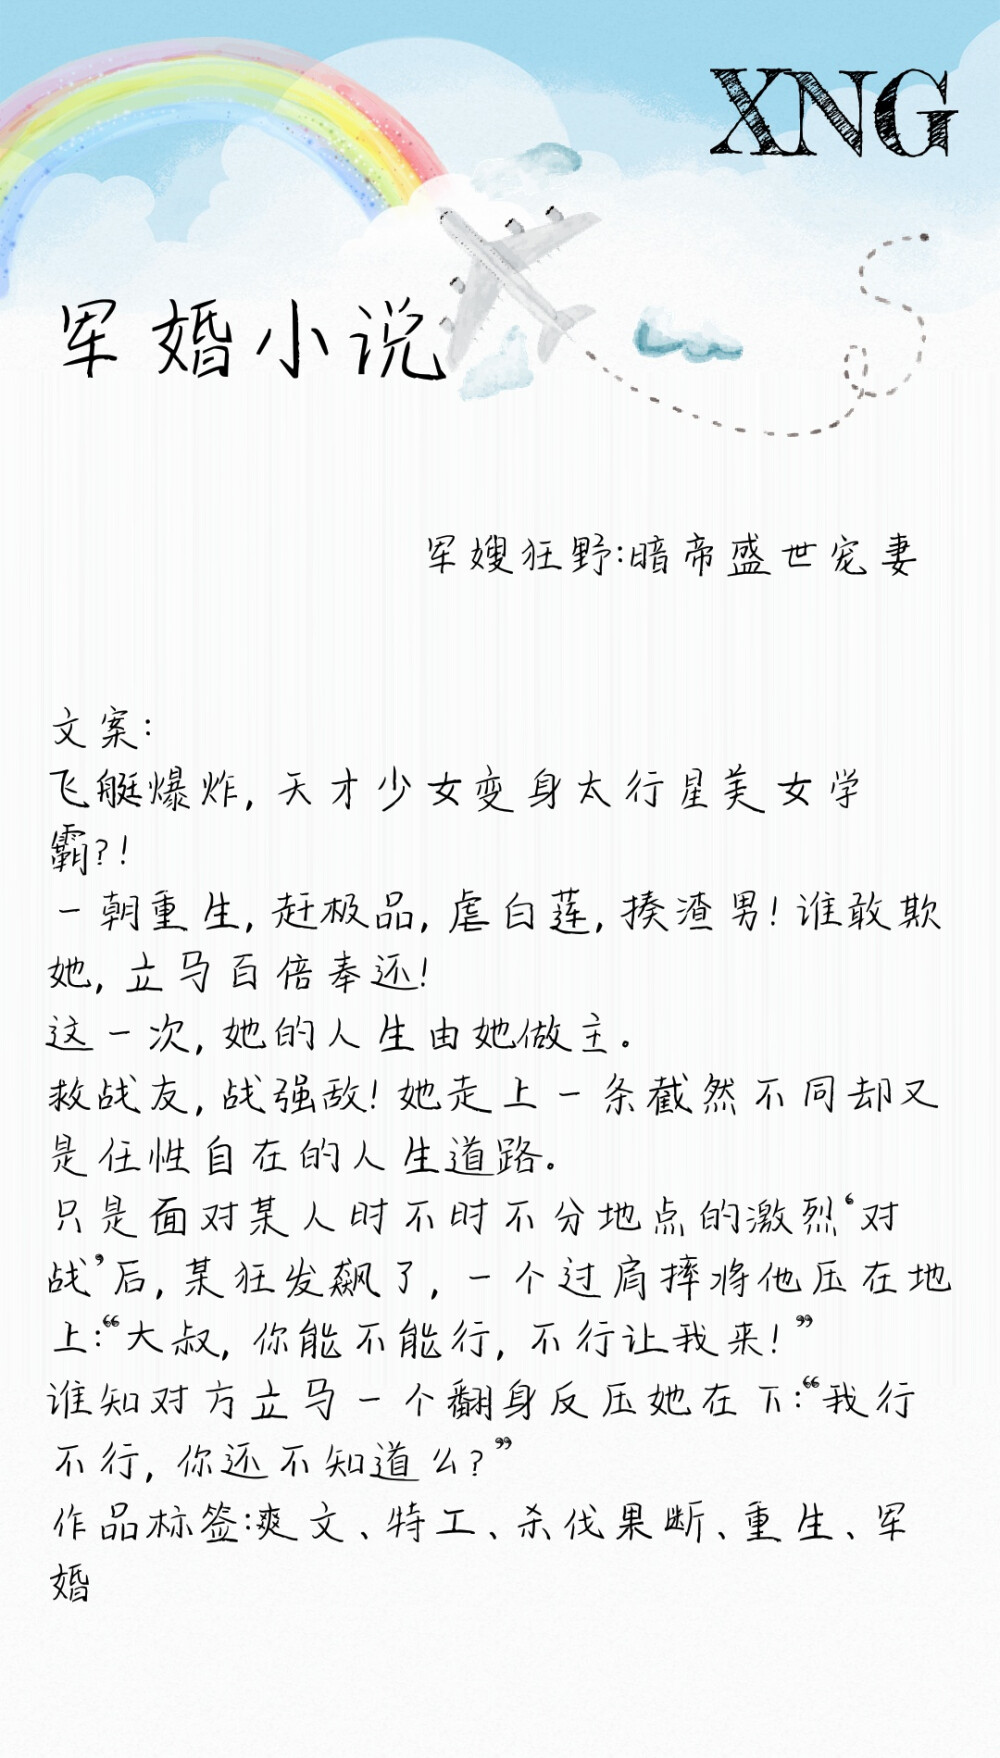 XNG
军婚小说
军嫂狂野:暗帝盛世宠妻
文案:
飞艇爆炸,天才少女变身太行星美女学
霸?!
一朝重生,赶极品,虐白莲,揍渣男!谁敢欺
她,立马百倍奉还!
这一次,她的人生由她做主。
救战友,战强敌!她走上一条截然不同却又
是任性自在的人生道路。
只是面对某人时不时不分地点的激烈‘对
战’后,某狂发飙了,一个过肩摔将他压在地
上:“大叔,你能不能行,不行让我来!”
谁知对方立马一个翻身反压她在下:“我行
不行,你还不知道么?”
作品标签:爽文、特工、杀伐果断、重生、军
婚